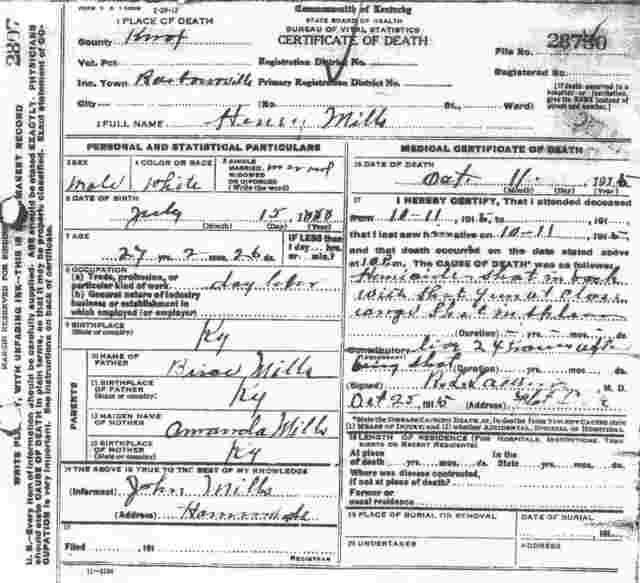 FORM V. S. 2-29-12
Commonwealth of Kentucky
STATE BOARD OF HEALTH
BUREAU OF VITAL STATISTICS
CERTIFICATE OF DEATH
1 PLACE OF DEATH
County Knox
File No. 28730
Vot. Pct. Registration District No.
Registered No.
Inc. Town Barbourville Primary Registration District No.
(If death occurred in a hospital or institution, give its NAME instead of street and number.)
City (No. St., Ward)
2 FULL NAME Henry Mills
PERSONAL AND STATISTICAL PARTICULARS
3 SEX
male
4 COLOR OR RACE
White
5 SINGLE
MARRIED,
WIDOWED
OR DIVORCED
(Write the word)
married
6 DATE OF BIRTH
July 15
(Month) (Day) (Year)
7 AGE
27 yrs. 2 mos. 26 ds.
IF LESS than
1 day hrs.
or min.?
8 OCCUPATION
(a) Trade, profession, or
particular kind of work day labor
(b) General nature of industry
business or establishment in
which employed (or employer)
9 BIRTHPLACE
(State or country) Ky
PARENTS
10 NAME OF
FATHER Mills
11 BIRTHPLACE
OF FATHER
(State or country) Ky
12 MAIDEN NAME
OF MOTHER Amanda Mills
13 BIRTHPLACE
OF MOTHER
(State or country) Ky
14 THE ABOVE IS TRUE TO THE BEST OF MY KNOWLEDGE
(Informant) John Mills
(Address)
15
Filed 191
REGISTRAR
11-3184
MEDICAL CERTIFICATE OF DEATH
16 DATE OF DEATH
Oct 11 1915
(Month) (Day) (Year)
17 I HEREBY CERTIFY, That I attended deceased
from 10-11, 1915, to 191
that I last saw him alive on 10-11, 1915,
and that death occurred on the date stated above
at m. The CAUSE OF DEATH* was as follows:
Homicide - shot in back
with shot gun at close
range shot in
(Duration) yrs. mos. ds.
Contributory live 24 hours after
(Secondary)
being shot
(Duration) yrs. mos. ds.
(Signed) M. D.
Oct 25, 1915 (Address)
*State the DISEASE CAUSING DEATH, or, in deaths from VIOLENT CAUSES state
(1) MEANS OF INJURY; and (2) whether ACCIDENTAL, SUICIDAL or HOMICIDAL
18 LENGTH OF RESIDENCE (FOR HOSPITALS, INSTITUTIONS, TRANSIENTS OR RECENT RESIDENTS)
At place
of death yrs. mos. ds.
In the
State yrs. mos. ds.
Where was disease contracted,
if not at place of death?
Former or
usual residence
19 PLACE OF BURIAL OR REMOVAL
DATE OF BURIAL
191
20 UNDERTAKER
ADDRESS
2807
MARGIN RESERVED FOR BINDING
WRITE PLAINLY, WITH UNFADING INK—THIS IS A PERMANENT RECORD
N. B.—Every item of information should be carefully supplied. AGE should be stated EXACTLY. PHYSICIANS
should state CAUSE OF DEATH in plain terms, so that it may be properly classified. Exact statement of OC-
CUPATION is very important. See instructions on back of certificate.